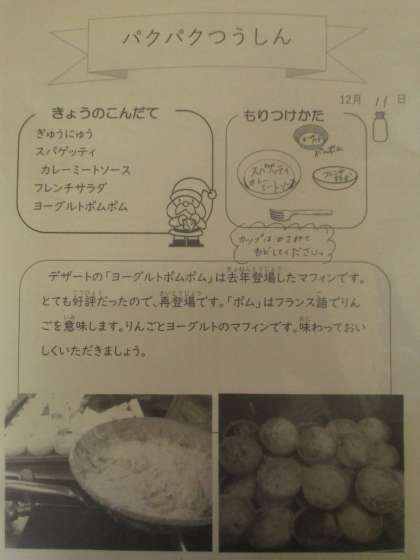 パクパクつうしん
12月 11 日
きょうのこんだて
ぎゅうにゅう
スパゲッティ
カレーミートソース
フレンチサラダ
ヨーグルトポムポム
もりつけかた
スパゲッティ
カレー
ミートソース
カップは、かさねて
もどしてください。
デザートの「ヨーグルトポムポム」は去年登場したマフィンです。
とても好評だったので、再登場です。「ポム」はフランス語でりん
ごを意味します。りんごとヨーグルトのマフィンです。味わっておい
しくいただきましょう。